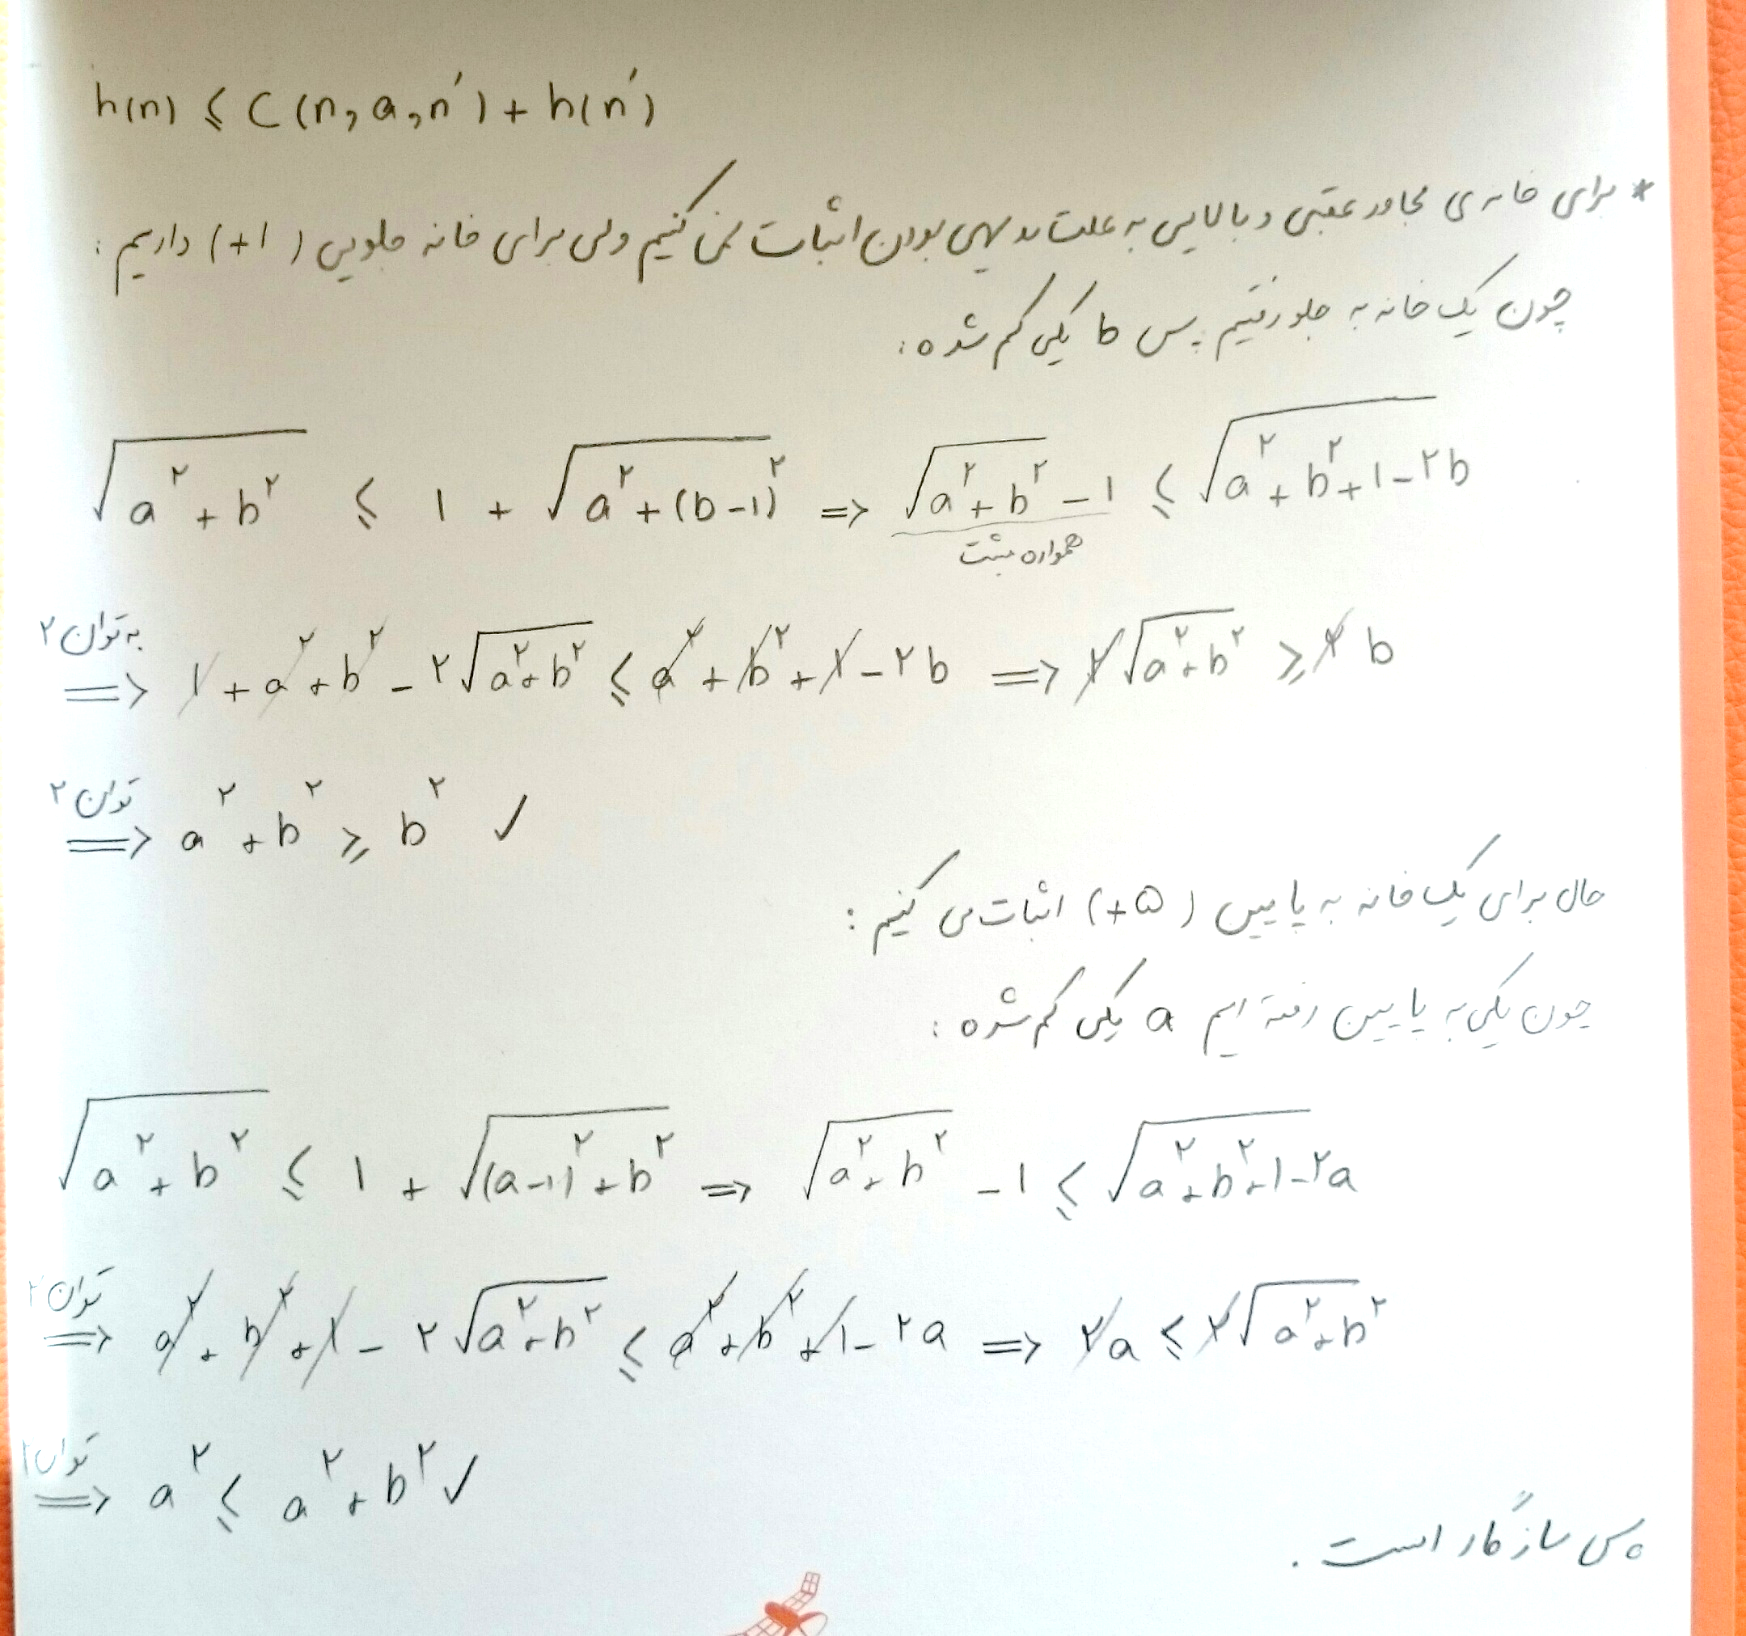 h(n) ≤ C(n, a, n') + h(n')
* برای خانه ی مجاور عقبی و بالایی به علت بدیهی بودن اثبات نمی کنیم ولی برای خانه جلویی (+۱) داریم :
چون یک خانه به جلو رفتیم پس b یکی کم شده :
√(a² + b²) ≤ ۱ + √(a² + (b-۱)²) => √(a² + b²) - ۱ ≤ √(a² + b² + ۱ - ۲b)
همواره مثبت
به توان ۲ => ۱ + a² + b² - ۲√(a² + b²) ≤ a² + b² + ۱ - ۲b => ۲√(a² + b²) ≥ ۲b
توان ۲ => a² + b² ≥ b² ✓
حال برای یک خانه به پایین (+۵) اثبات می کنیم :
چون یکی به پایین رفته ایم a یکی کم شده :
√(a² + b²) ≤ ۱ + √((a-۱)² + b²) => √(a² + b²) - ۱ ≤ √(a² + b² + ۱ - ۲a)
توان ۲ => a² + b² + ۱ - ۲√(a² + b²) ≤ a² + b² + ۱ - ۲a => ۲a ≤ ۲√(a² + b²)
توان ۲ => a² ≤ a² + b² ✓
پس سازگار است .